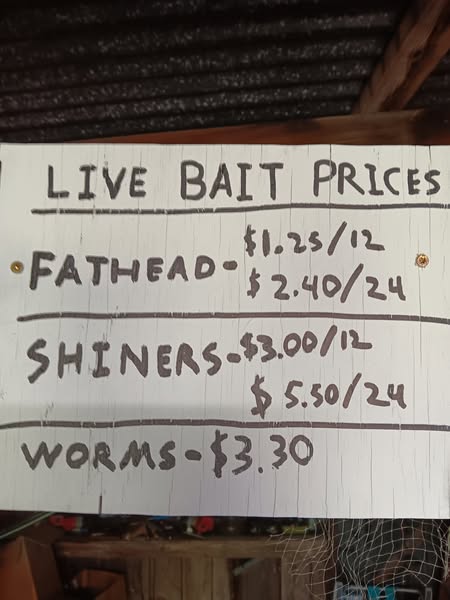 LIVE BAIT PRICES
FATHEAD - $1.25/12
$2.40/24
SHINERS - $3.00/12
$5.50/24
WORMS - $3.30